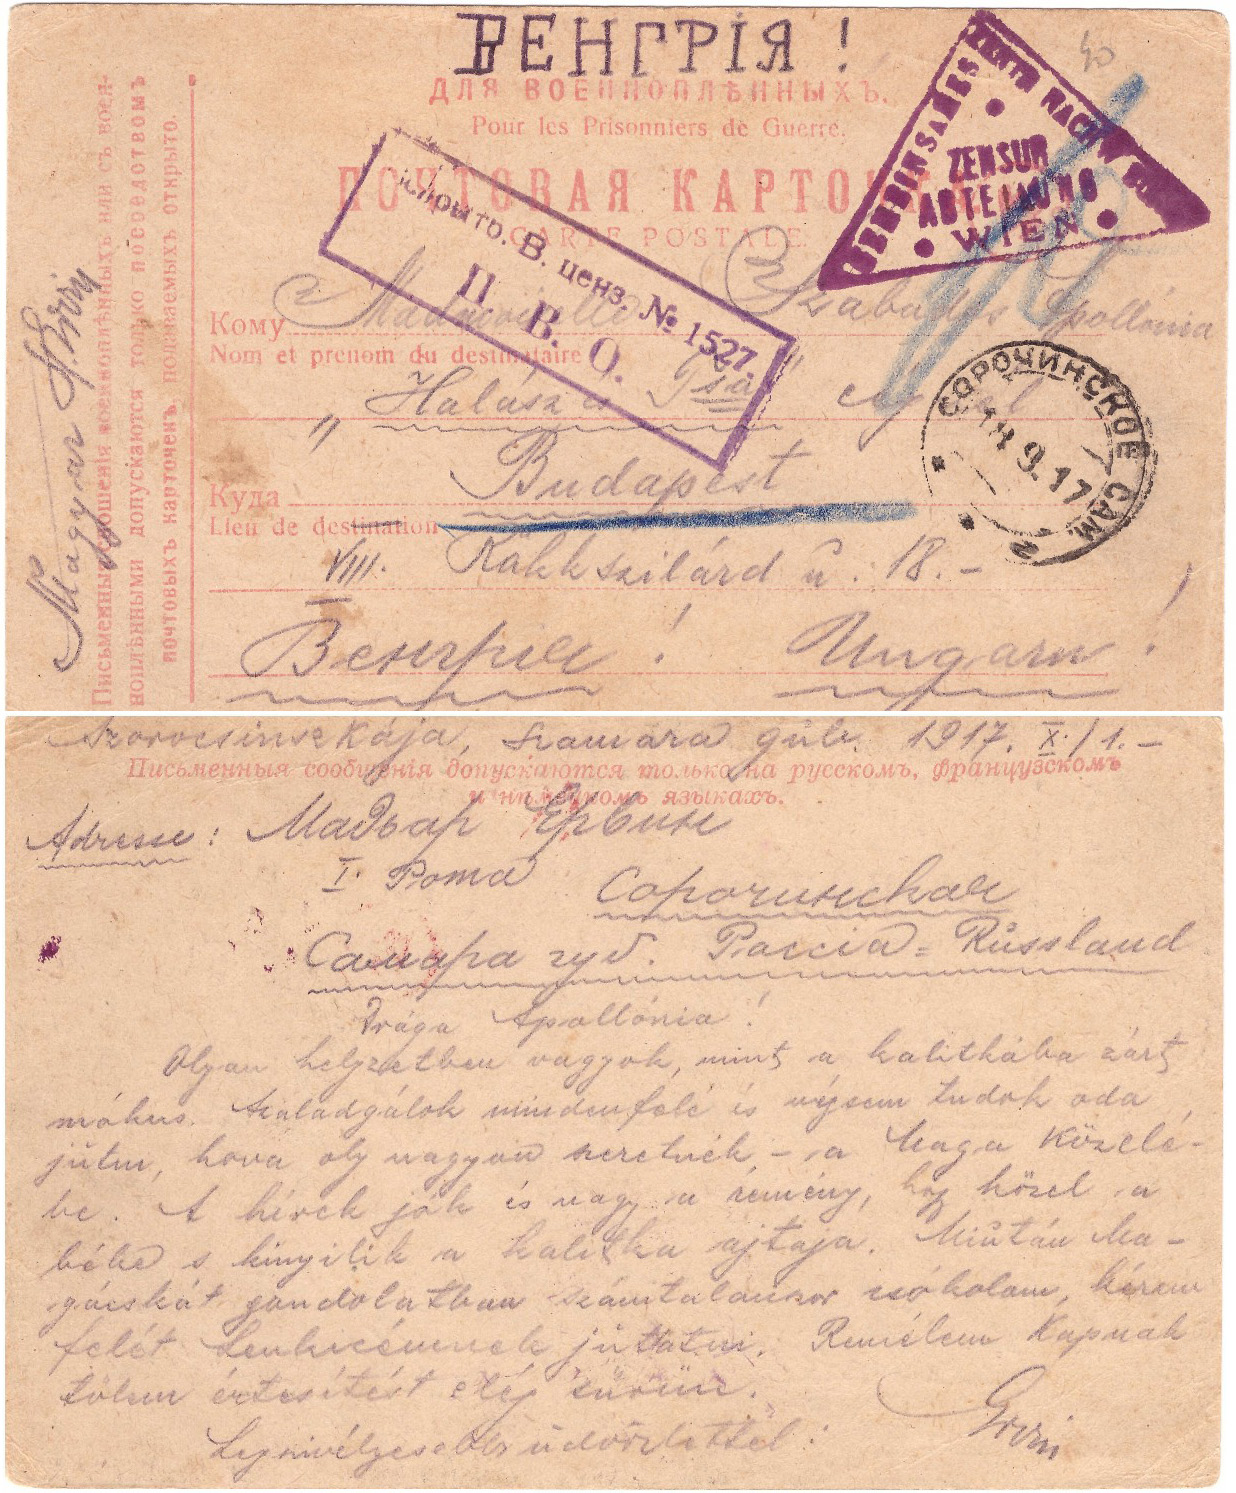 ВЕНГРІЯ!
ДЛЯ ВОЕННОПЛѢННЫХЪ.
Pour les Prisonniers de Guerre.
ПОЧТОВАЯ КАРТОЧКА
CARTE POSTALE.
40
ZENSUR
ABTEILUNG
WIEN
В. ценз. № 1527.
П. В. О.
Кому Mademoiselle Szabados Apollónia
Nom et prénom du destinataire
„ Halász és Társa “ cégnél
Куда Budapest
Lieu de destination
VIII. Rökk Szilárd u. 18.-
Венгрія! Ungarn!
СОРОЧИНСКОЕ САМ.
18 9 17
Magyar Ervin
Письменныя сношенія военноплѣнныхъ или съ воен-
ноплѣнными допускаются только посредствомъ
почтовыхъ карточекъ, подаваемыхъ открыто.
Szorocsinszkája, Szamara gub. 1917. X./1.-
Письменныя сообщенія допускаются только на русскомъ, французскомъ
и нѣмецкомъ языкахъ.
Adresse: Мадьар Ервин
I. Рота Сорочинская
Самара губ. Россіа = Russland
Drága Apollónia!
Olyan helyzetben vagyok, mint a kalitkába zárt
mókus. Szaladgálok mindenfelé és mégsem tudok oda
jutni, hova oly nagyon szeretnék - a Maga közelé-
be. A hírek jók és nagy a remény, hogy közel a
béke s kinyílik a kalitka ajtaja. Miután Ma-
gácskát gondolatban számtalanszor csókolom, kérem
felét Lenkecémnek juttatni. Remélem kapnak
tőlem értesítést elég sűrűn.
Legszívélyesebb üdvözlettel:
Ervin